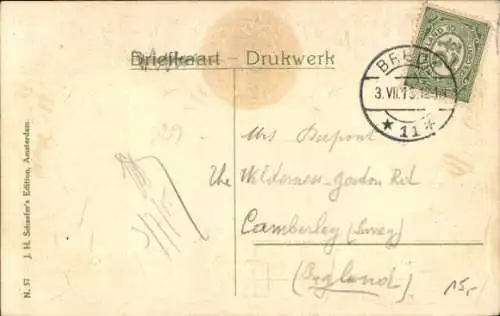 Briefkaart - Drukwerk
BREDA
3.VII.13.12-1N
★ 11 ★
Mrs Pierpont
The Wilderness - Gordon Rd
Camberley (Surrey)
(England)
15,-
N. 57 J. H. Schaefer's Edition, Amsterdam.